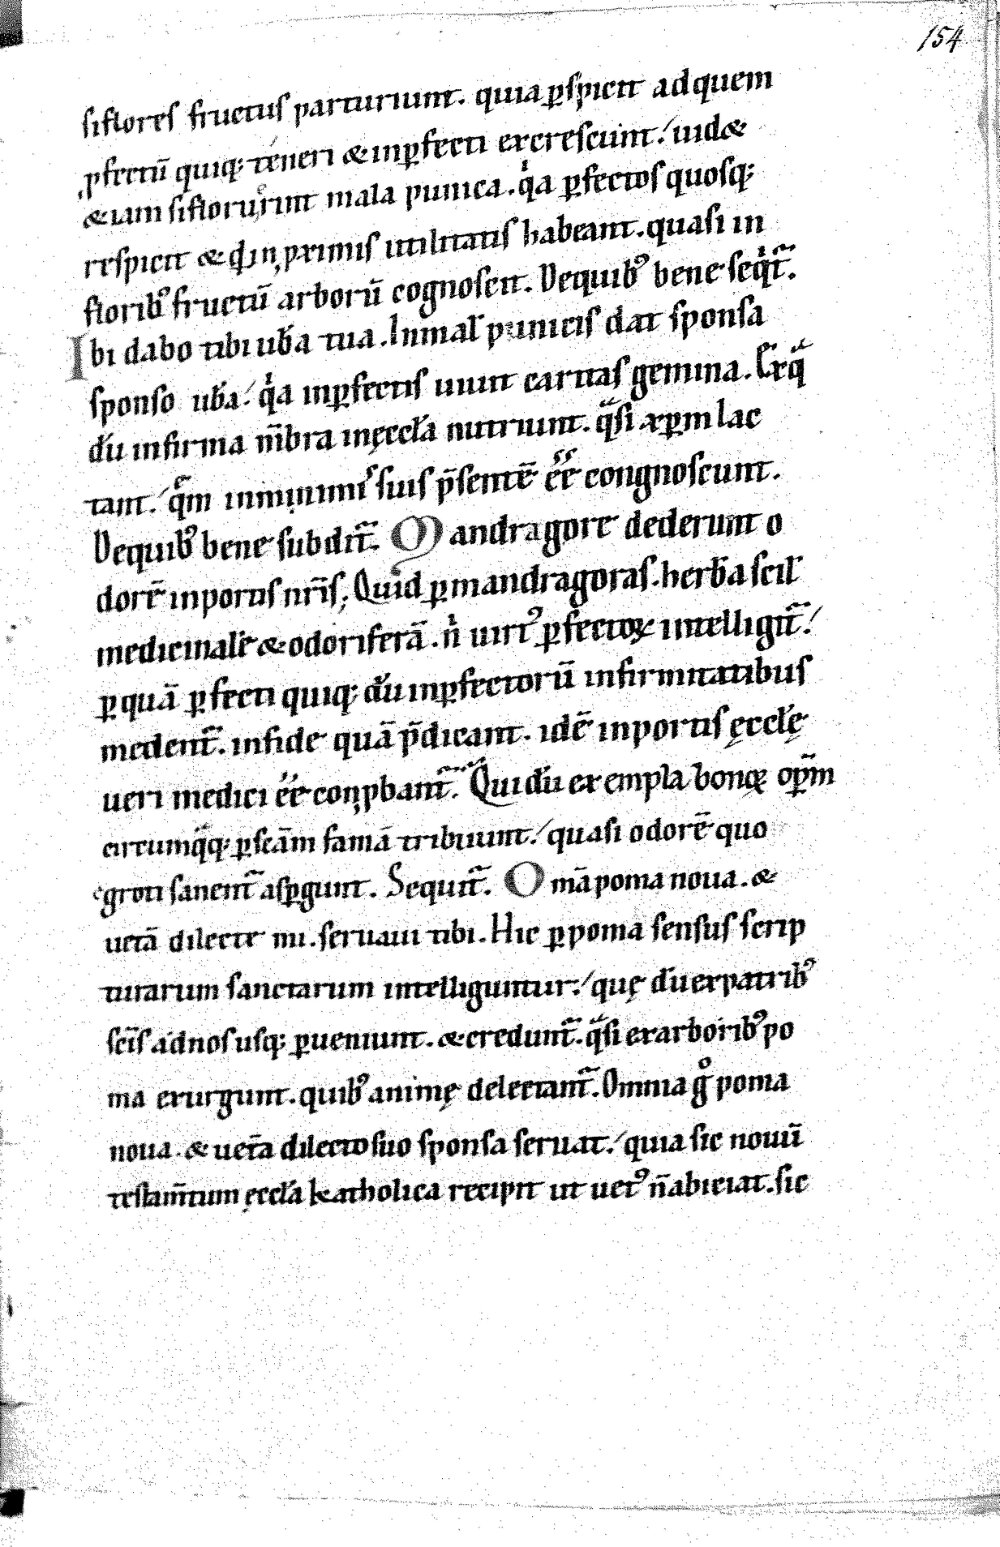 154
si flores fructus parturiunt. quia ꝑspicit ad quem
ꝓfectū quiq; teneri & inꝑfecti excrescunt. uid&
& iam si floruͦrint mala punica. qͥa ꝑfectos quosq;
respicit & qd in ꝓximis utilitatis habeant. quasi in
florib᾽ fructū arborū cognoscit. Dequib᾽ bene seqͥt᷑.
Ibi dabo tibi uƀa tua. In mal᾽ punicis dat sponsa
sponso uƀa. qͥa inꝑfectis uiuit caritas gemina. Exq̄
dū infirma m̄bra in ęccl̄a nutriunt. qͣsi ax ꝑm lac
tant. qm̄ in nimi᾽ suis p̄sentē ēē congnoscunt.
Dequib᾽ bene subdit᷑. Mandragore dederunt o
dorē in portis nr̄is; Quid ꝑ mandragoras. herƀa scil᾽
medicinalē & odoriferā. n̄ uirt᾽ ꝑfectoꝝ intelligit᷑.
ꝑ quā ꝑfecti quiq; dū inꝑfectorū infirmitatibus
medent᷑. in fide quā p̄dicant. idē in portis ęccl̄ę
ueri medici ēē conꝓbant᷑. Qui dū exempla bonoꝝ oꝑm
circumqͣq; ꝑ sc̄am famā tribuunt. quasi odorē quo
egroti sanent᷑ asꝑgunt. Sequit᷑. Om̄a poma noua. &
uet̄a dilecte mi. seruaui tibi. Hic ꝑ poma sensus scrip
turarum sanctarum intelliguntur. quę dū ex patrib᾽
sc̄is ad nos usq; ꝑueniunt. & credunt᷑. qͣsi ex arborib᾽ po
ma exurgunt. quib᾽ animę delectant᷑. Omnia gͦ poma
noua. & uet̄a dilecto suo sponsa seruat. quia sic nouū
testam̄tum ęccl̄a katholica recipit ut uet᾽ n̄ abiciat. sic